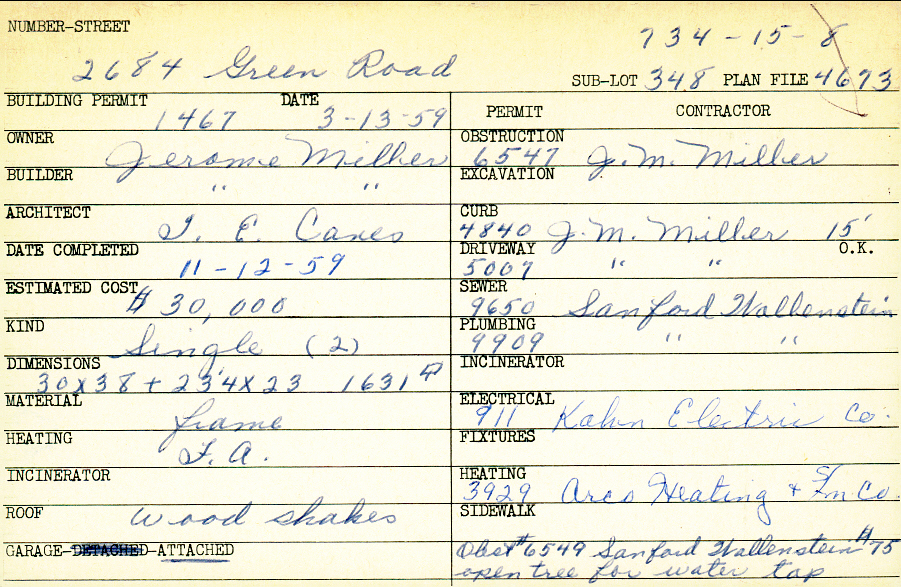 NUMBER-STREET
734-15-8
2684 Green Road
SUB-LOT 348 PLAN FILE 4673
BUILDING PERMIT 1467 DATE 3-13-59
OWNER Jerome Miller
BUILDER " "
ARCHITECT
DATE COMPLETED 11-12-59
ESTIMATED COST $ 30,000
KIND Single (2)
DIMENSIONS 30x38 + 23'4x23 1631
MATERIAL frame
HEATING F.A.
INCINERATOR
ROOF wood shakes
GARAGE-DETACHED-ATTACHED
PERMIT CONTRACTOR
OBSTRUCTION 6547 J.M. Miller
EXCAVATION
CURB 4840 J.M. Miller 15'
DRIVEWAY 5007 " " O.K.
SEWER 9650 Sanford Wallenstein
PLUMBING 9909 " "
INCINERATOR
ELECTRICAL 911 Kahn Electric Co.
FIXTURES
HEATING 3929 Arco Heating &
SIDEWALK
Obst #6549 Sanford Wallenstein #75
open tree for water tap